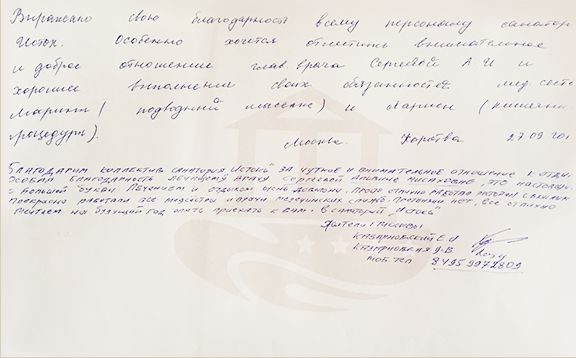 Выражаю свою благодарность всему персоналу санатор
Исток. Особенно хочется отметить внимательное
и доброе отношение глав. врача Сергеевой А И и
хорошее выполнение своих обязанностей мед. сест
Марины (подводный массаж) и Ларисы (кишечн
процедуры).
Москва. 27.09.20
Благодарим коллектив санатория "Исток" за чуткое и внимательное отношение к отды
Особая благодарность лечущему врачу Сергеевой это настоящ
с большой буквы. Лечением и отдыхом очень довольны.
Прекрасно работали все медсестры и врачи медицинских служб. Претензий нет, все отлично
на будущий год опять приехать к вам в санаторий "Исток"
Жители г Москвы
Е.И
В
моб. тел 84959972809